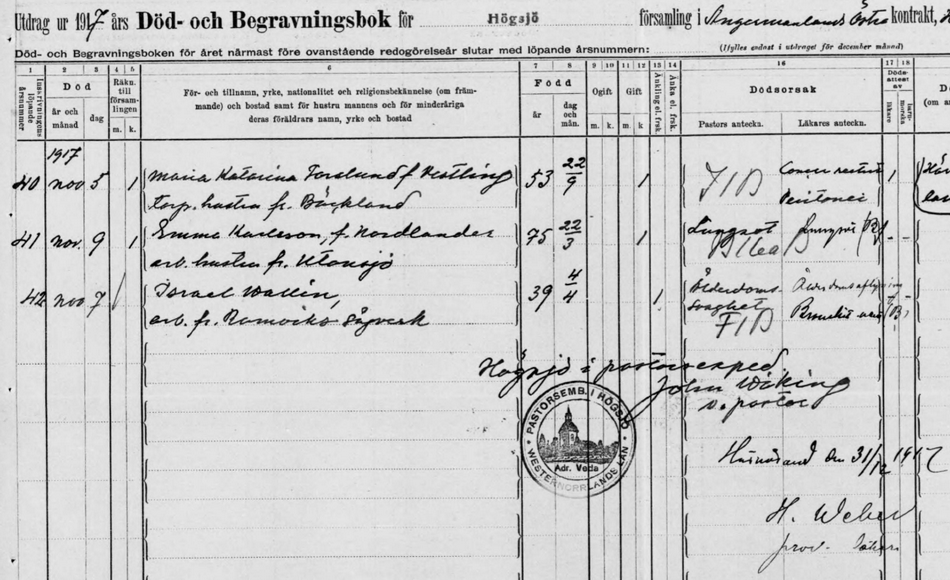 Utdrag ur 1917 års Död- och Begravningsbok för Högsjö församling i Ångermanlands Östra kontrakt,
Död- och Begravningsboken för året närmast före ovanstående redogörelseår slutar med löpande årsnummer:
(Ifylles endast i utdraget för december månad)
1 2 3 4 5 6 7 8 9 10 11 12 13 14 16 17 18
Inskrivningens löpande årsnummer
Död
år och månad
dag
Räkn. till församlingen
m. k.
För- och tillnamn, yrke, nationalitet och religionsbekännelse (om främ-
mande) och bostad samt för hustru mannens och för minderåriga
deras föräldrars namn, yrke och bostad
Född
år
dag och mån.
Ogift
m. k.
Gift
m. k
Änkling el. frsk.
Änka el. frsk.
Dödsorsak
Pastors anteckn.
Läkares anteckn.
Dödsattest av
läkare
1917
40 nov 5 1 Maria Katarina Forslund f Kestling 53 22/9 1
Torp. hustru fr. Bäckland
41 nov. 9 1 Emma Karlsson, f. Nordlander 75 22/3 1 Lungsot
arb. hustru fr. Utansjö
42 nov 7 / Israel Wallin, 39 4/4 1 Ålderdoms
arb. fr. Ramviks Sågverk svaghet
Högsjö i pastorsexped.
John Wiking
v. pastor
PASTORSEMB. I HÖGSJÖ
WESTERNORRLANDS LÄN
Adr. Veda
Härnösand den 31/12 1917
H. Weber
prov. läkare